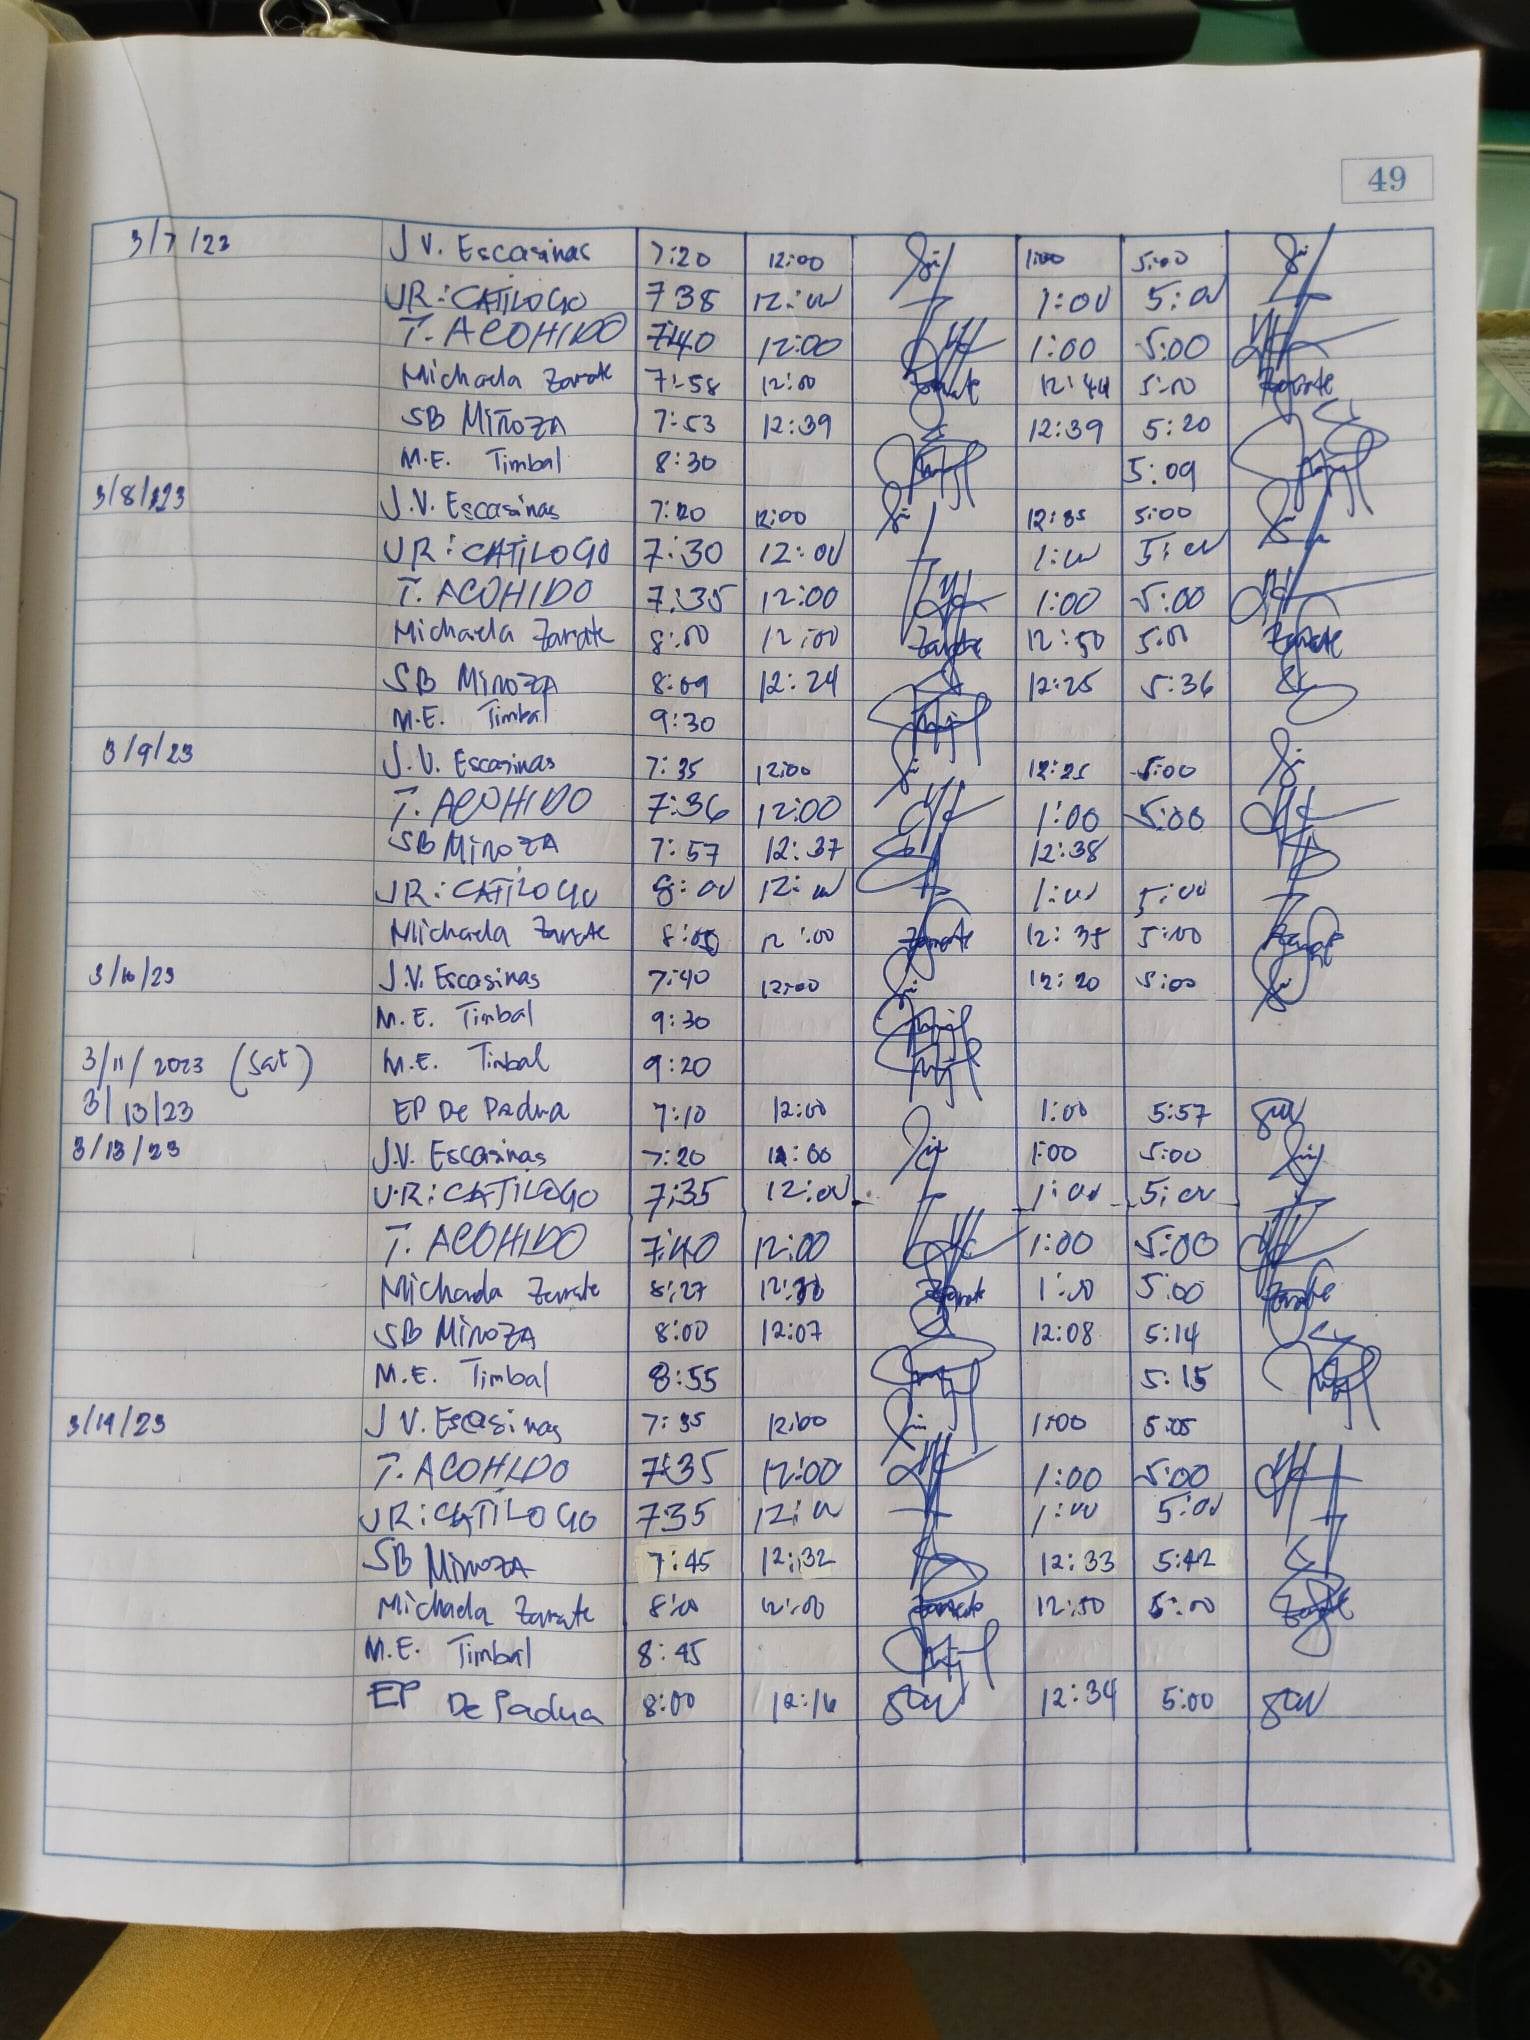 49
3/7/23 J V. Escasinas 7:20 12:00 1:00 5:00
UR: CATILOGO 738 12:00 1:00 5:00
T. ACOHIDO 7:40 12:00 1:00 5:00
Michaela Zarate 7:58 12:00 Zarate 12:44 5:00 Zarate
SB MIÑOZA 7:53 12:39 12:39 5:20
M.E. Timbal 8:30 5:09
3/8/23 J.V. Escasinas 7:20 12:00 12:35 5:00
UR: CATILOGO 7:30 12:00 1:00 5:00
T. ACOHIDO 7:35 12:00 1:00 5:00
Michaela Zarate 8:00 12:00 Zarate 12:50 5:00 Zarate
SB MINOZA 8:09 12:24 12:25 5:36
M.E. Timbal 9:30
3/9/23 J.V. Escasinas 7:35 12:00 12:25 5:00
T. ACOHIDO 7:36 12:00 1:00 5:00
SB MINOZA 7:57 12:37 12:38
UR: CATILOGO 8:00 12:00 1:00 5:00
Michaela Zarate 12:00 Zarate 12:35 5:00 Zarate
3/10/23 J.V. Escasinas 7:40 12:00 12:20 5:00
M.E. Timbal 9:30
3/11/2023 (Sat) M.E. Timbal 9:20
3/13/23 EP De Padua 7:10 12:00 1:00 5:57
3/13/23 J.V. Escasinas 7:20 12:00 1:00 5:00
UR: CATILOGO 7:35 12:00 1:00 5:00
T. ACOHIDO 7:40 12:00 1:00 5:00
Michaela Zarate 8:27 Zarate 1:00 5:00 Zarate
SB MINOZA 8:00 12:07 12:08 5:14
M.E. Timbal 8:55 5:15
3/14/23 J V. Escasinas 7:35 12:00 1:00 5:05
T. ACOHIDO 7:35 12:00 1:00 5:00
UR: CATILOGO 735 12:00 1:00 5:00
SB MINOZA 7:45 12:32 12:33 5:42
Michaela Zarate 8:00 12:00 Zarate 12:50 5:00 Zarate
M.E. Timbal 8:45
EP De Padua 8:00 12:16 12:34 5:00